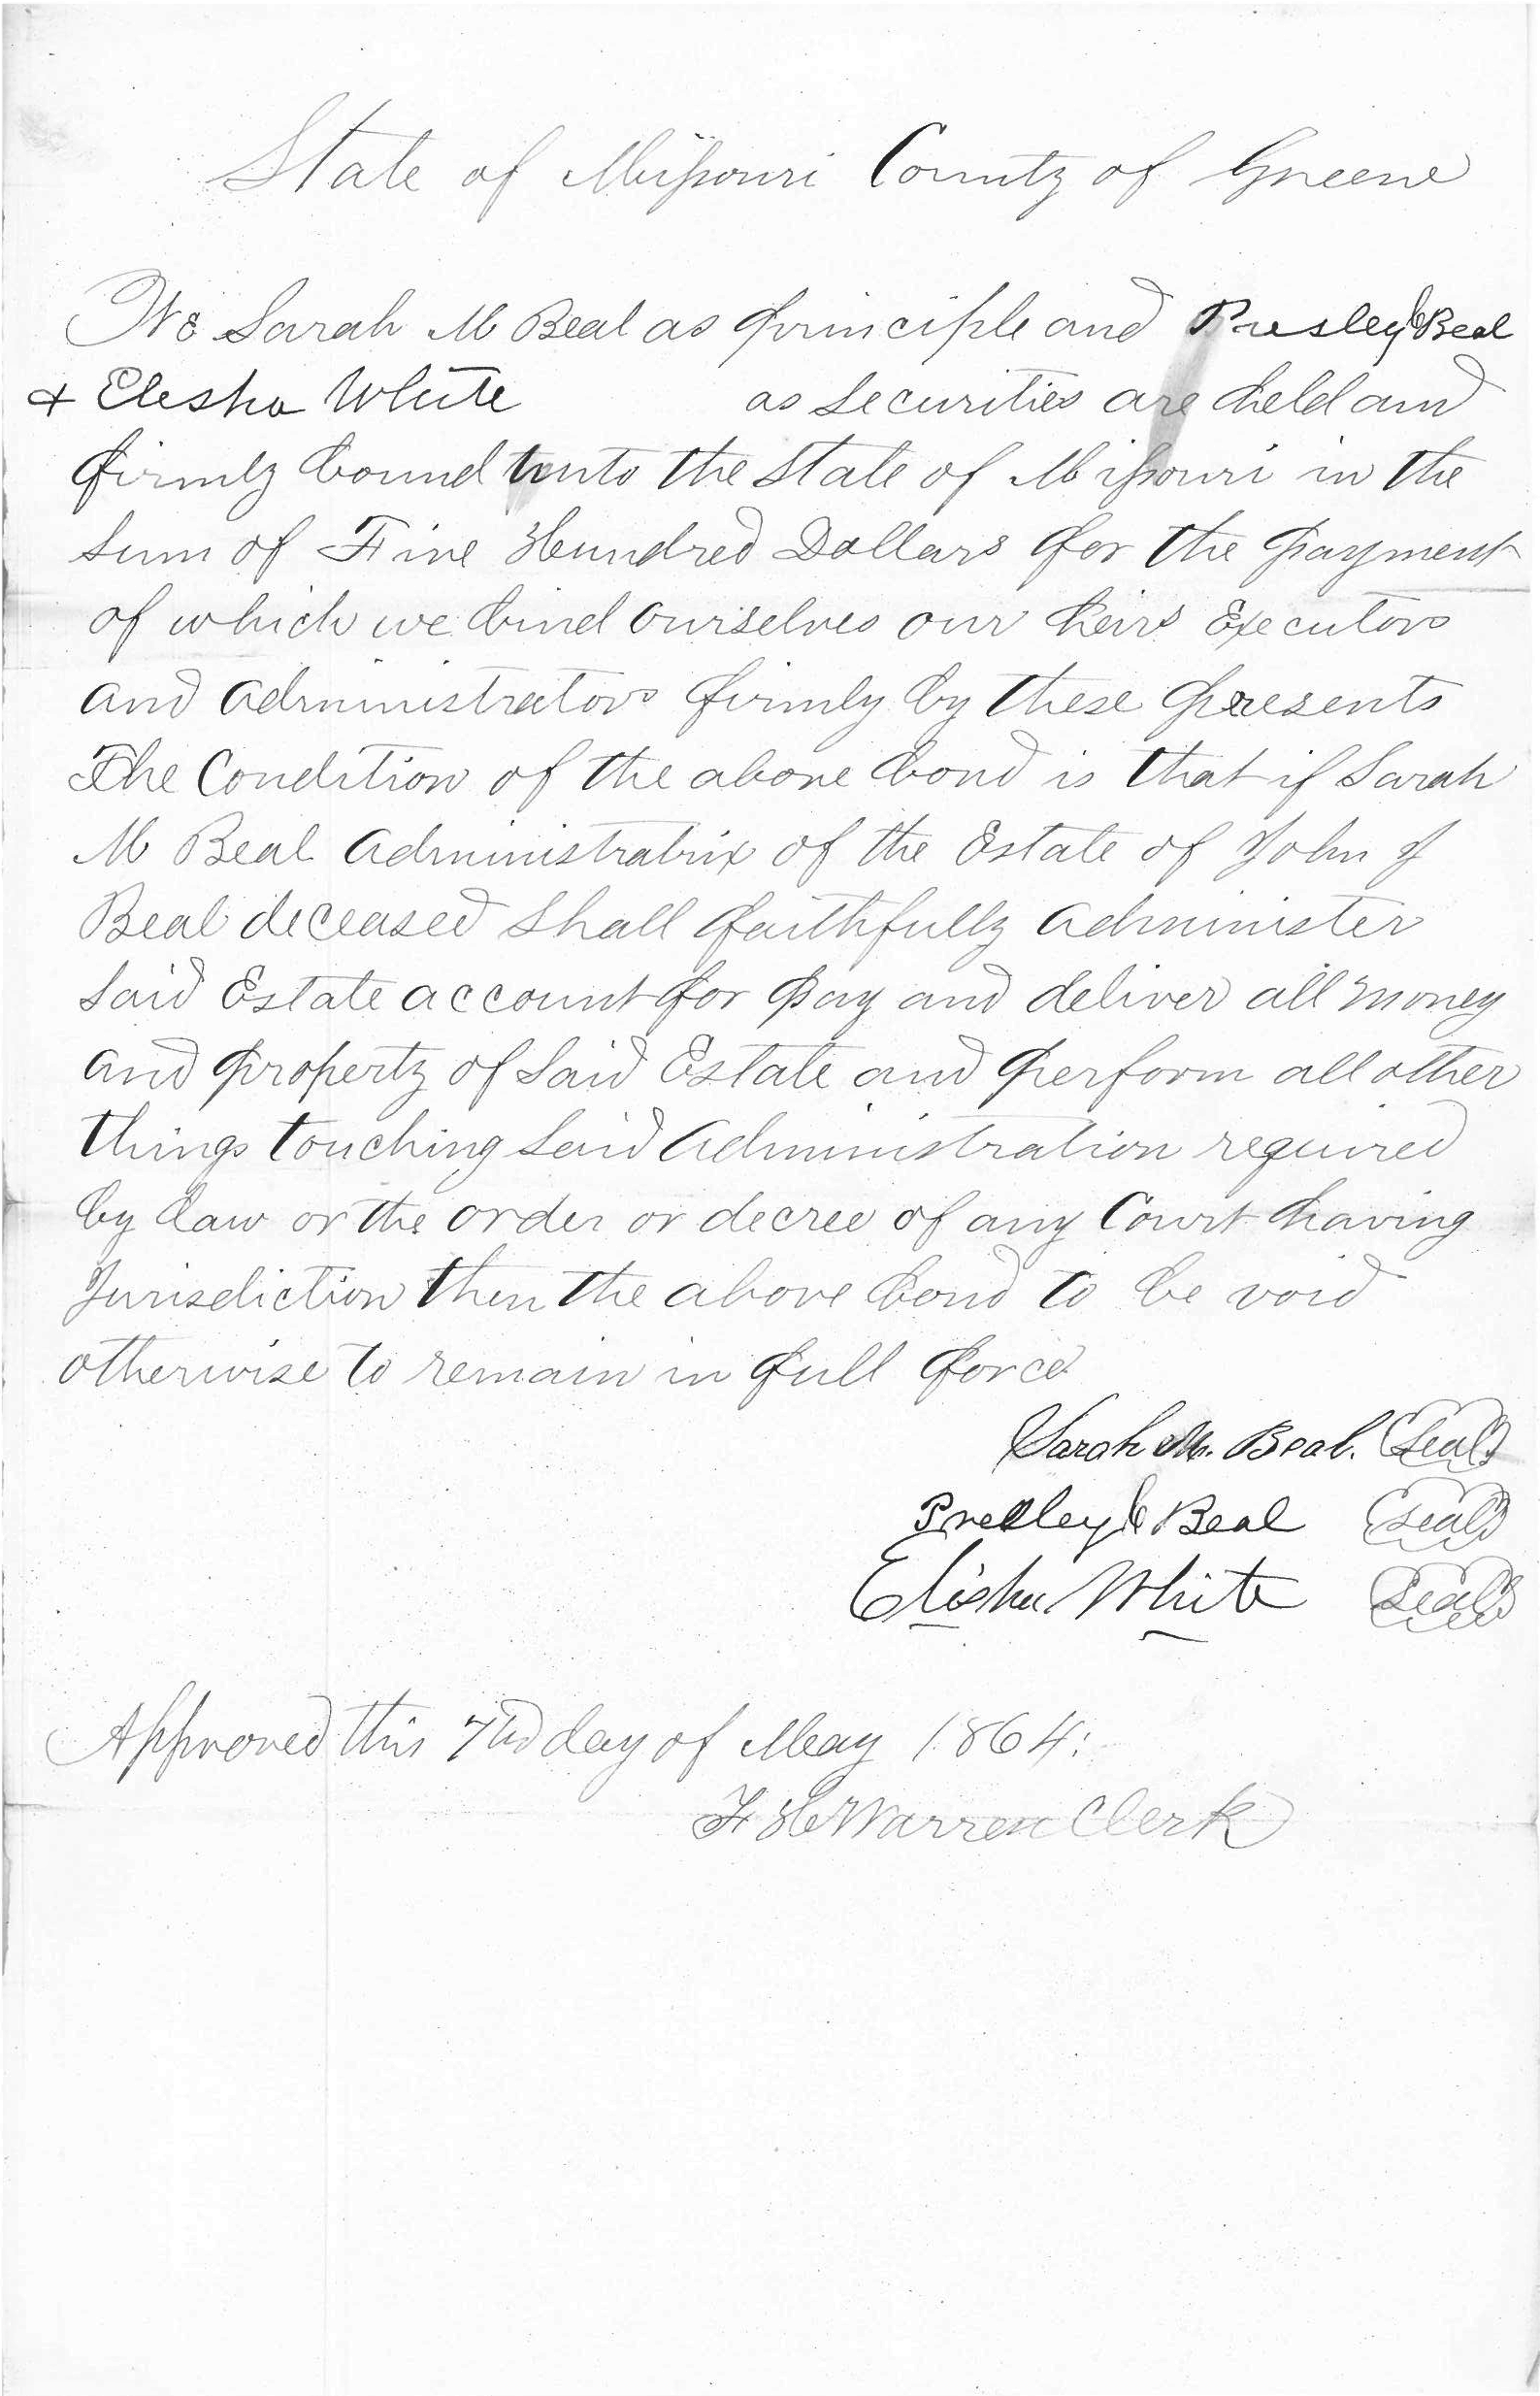 State of Missouri County of Greene
We Sarah M Beal as principle and Presley C Beal
+ Elesha White as securities are held and
firmly bound unto the State of Missouri in the
sum of Five Hundred Dollars for the payment
of which we bind ourselves our heirs Executors
and administrators firmly by these presents
The Condition of the above bond is that if Sarah
M Beal administratrix of the Estate of John J
Beal deceased shall faithfully administer
said Estate account for pay and deliver all money
and property of said Estate and perform all other
things touching said administration required
by law or the order or decree of any Court having
Jurisdiction then the above bond to be void
otherwise to remain in full force
Sarah M. Beal. Seal
Presley C Beal Seal
Elisha White Seal
Approved this 7th day of May 1864:
F H Warren Clerk